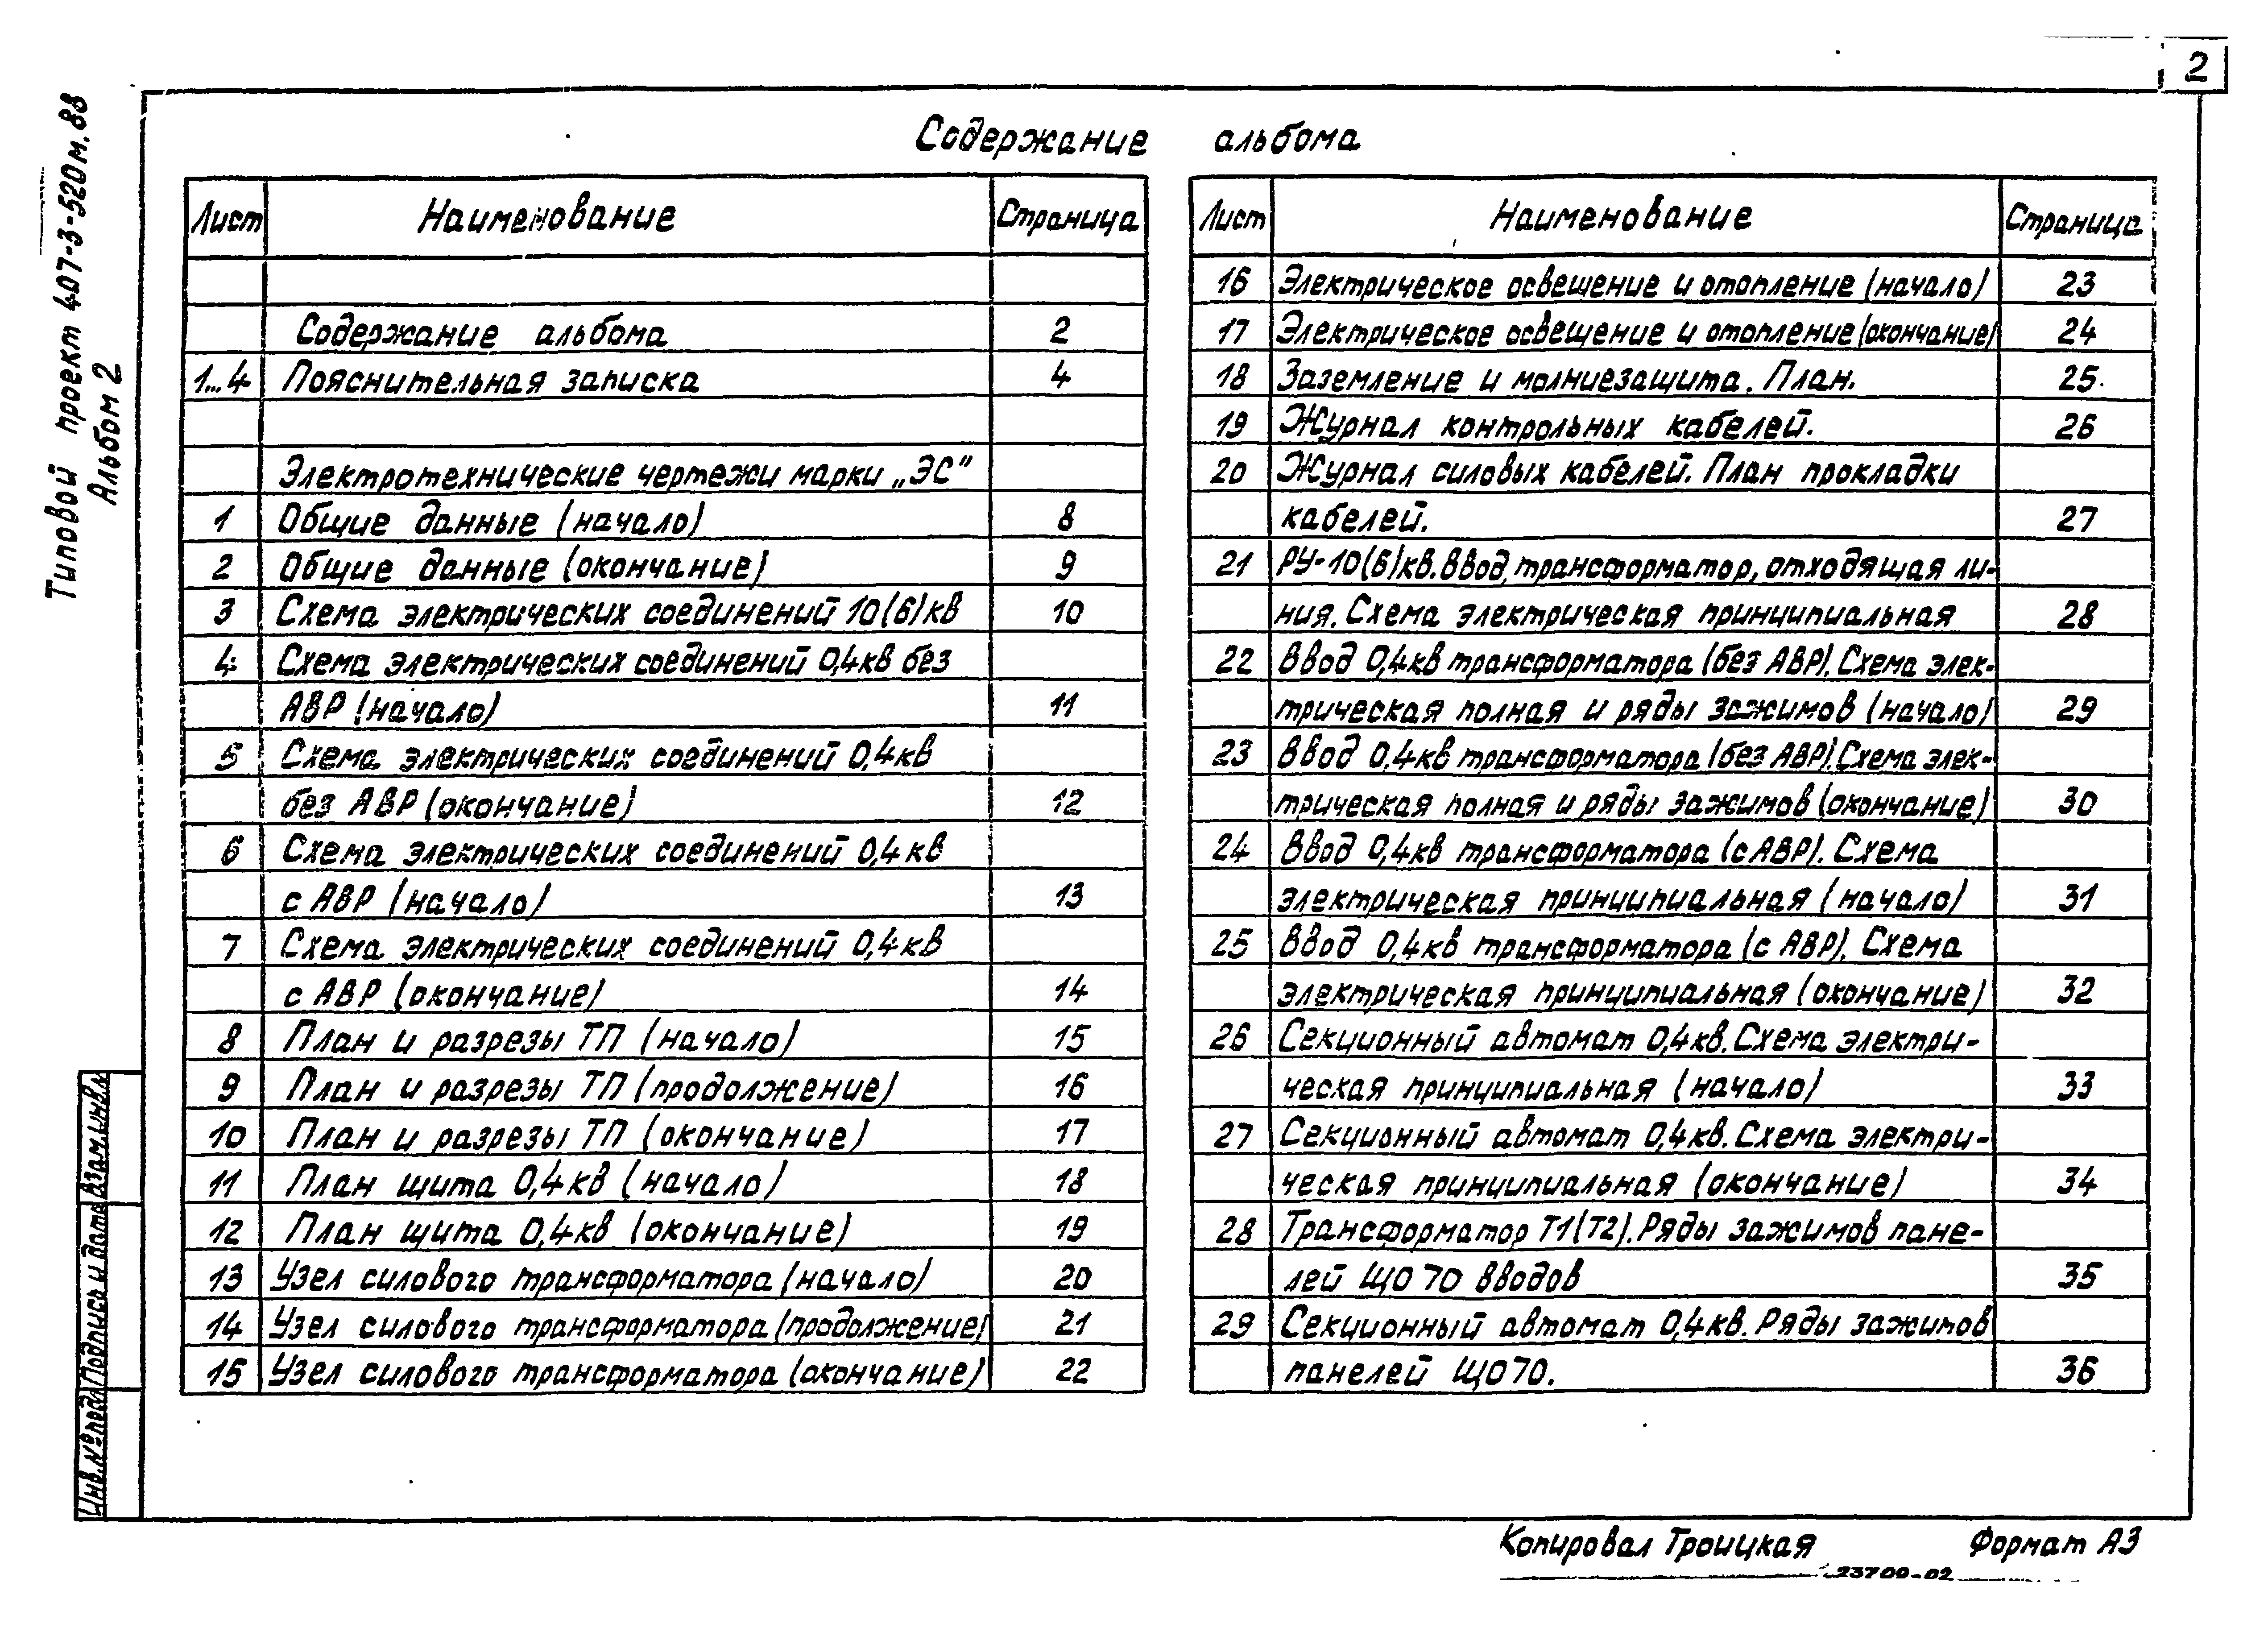 2
Типовой проект 407-3-520м.88
Альбом 2
Содержание альбома
Лист Наименование Страница
Содержание альбома 2
1...4 Пояснительная записка 4
Электротехнические чертежи марки „ЭС"
1 Общие данные (начало) 8
2 Общие данные (окончание) 9
3 Схема электрических соединений 10(6)кв 10
4 Схема электрических соединений 0,4кв без
АВР (начало) 11
5 Схема электрических соединений 0,4кв
без АВР (окончание) 12
6 Схема электрических соединений 0,4кв
с АВР (начало) 13
7 Схема электрических соединений 0,4кв
с АВР (окончание) 14
8 План и разрезы ТП (начало) 15
9 План и разрезы ТП (продолжение) 16
10 План и разрезы ТП (окончание) 17
11 План щита 0,4кв (начало) 18
12 План щита 0,4кв (окончание) 19
13 Узел силового трансформатора (начало) 20
14 Узел силового трансформатора (продолжение) 21
15 Узел силового трансформатора (окончание) 22
Лист Наименование Страница
16 Электрическое освещение и отопление (начало) 23
17 Электрическое освещение и отопление (окончание) 24
18 Заземление и молниезащита. План. 25
19 Журнал контрольных кабелей. 26
20 Журнал силовых кабелей. План прокладки
кабелей. 27
21 РУ-10(6)кв. Ввод, трансформатор, отходящая ли-
ния. Схема электрическая принципиальная 28
22 Ввод 0,4кв трансформатора (без АВР). Схема элек-
трическая полная и ряды зажимов (начало) 29
23 Ввод 0,4кв трансформатора (без АВР). Схема элек-
трическая полная и ряды зажимов (окончание) 30
24 Ввод 0,4кв трансформатора (с АВР). Схема
электрическая принципиальная (начало) 31
25 Ввод 0,4кв трансформатора (с АВР). Схема
электрическая принципиальная (окончание) 32
26 Секционный автомат 0,4кв. Схема электри-
ческая принципиальная (начало) 33
27 Секционный автомат 0,4кв. Схема электри-
ческая принципиальная (окончание) 34
28 Трансформатор Т1(Т2). Ряды зажимов пане-
лей ЩО 70 вводов 35
29 Секционный автомат 0,4кв. Ряды зажимов
панелей ЩО70. 36
Взам.инв.№
Подпись и дата
Инв.№подл
Копировал Троицкая Формат А3
23709-02